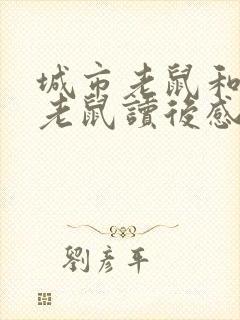 城市老鼠和
老鼠讀後感
劉彥平